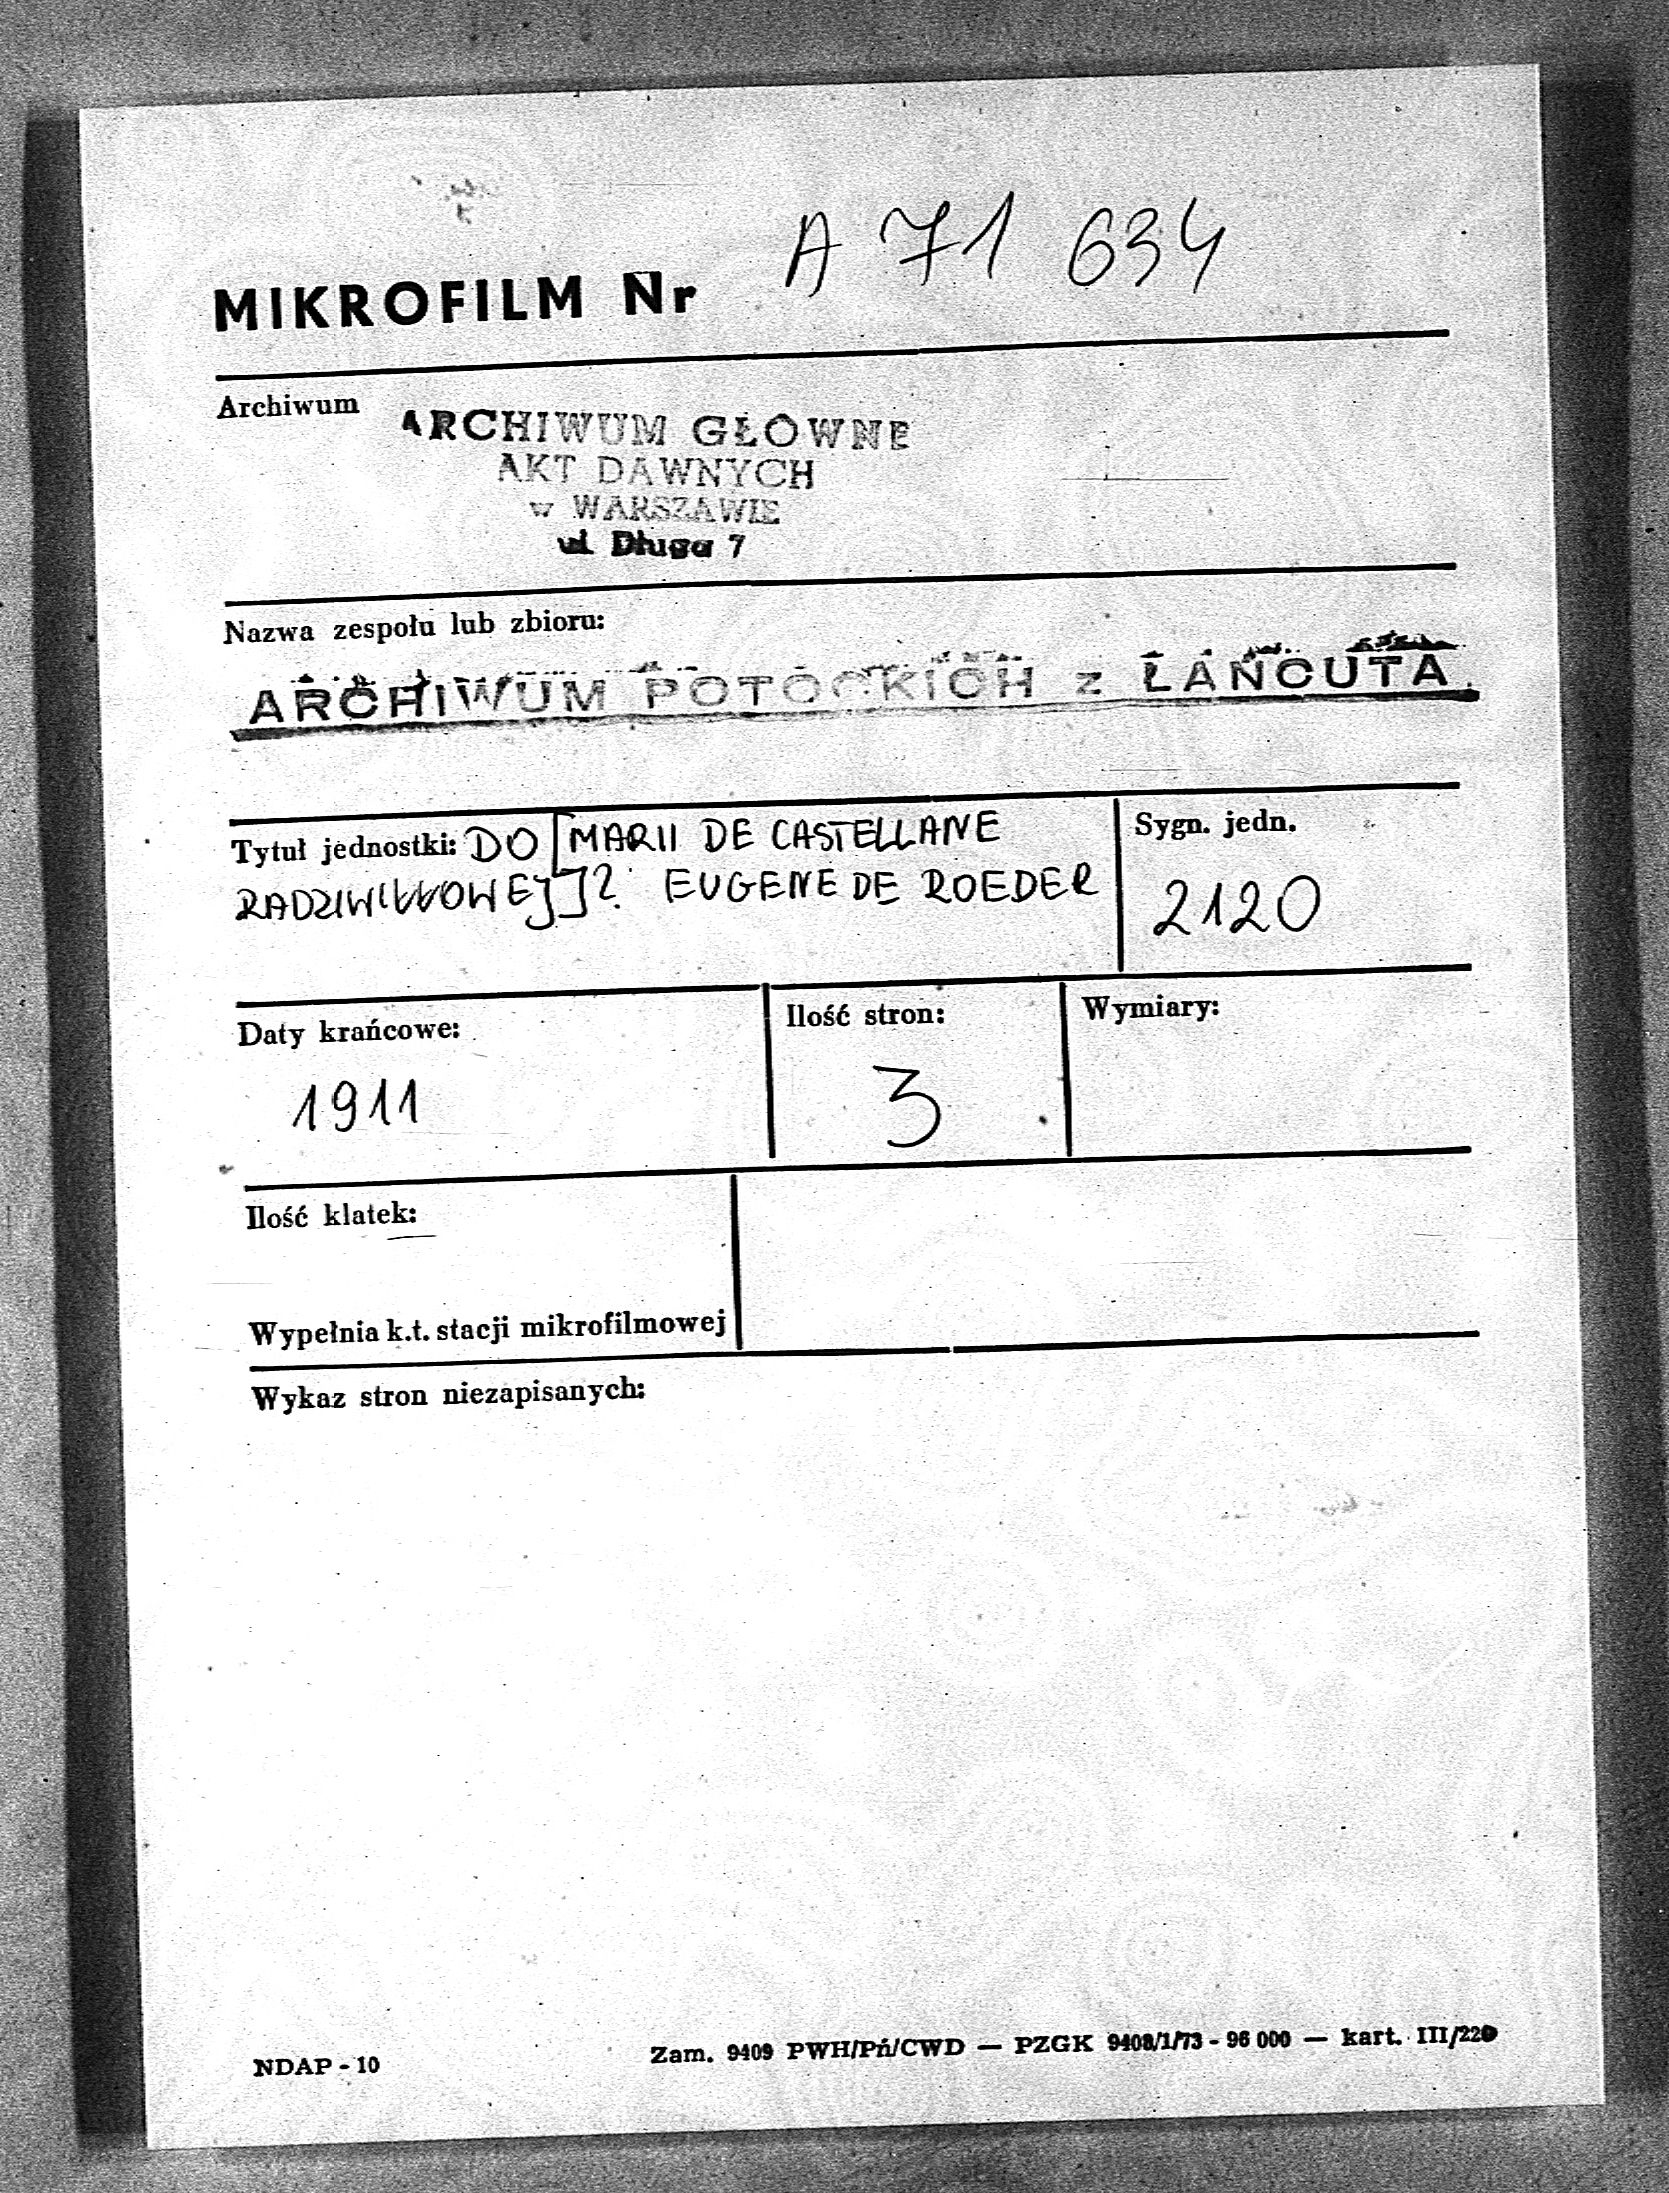 MIKROFILM Nr A 71 634
Archiwum
ARCHIWUM GŁÓWNE
AKT DAWNYCH
w WARSZAWIE
ul. Długa 7
Nazwa zespołu lub zbioru:
ARCHIWUM POTOCKICH z ŁAŃCUTA
Tytuł jednostki: DO [MARII DE CASTELLANE
RADZIWIŁŁOWEJ]? EUGENE DE ROEDER
Sygn. jedn.
2120
Daty krańcowe:
1911
Ilość stron:
3
Wymiary:
Ilość klatek:
Wypełnia k.t. stacji mikrofilmowej
Wykaz stron niezapisanych:
NDAP - 10
Zam. 9409 PWH/Pń/CWD — PZGK 9408/1/73 - 96 000 — kart. III/220